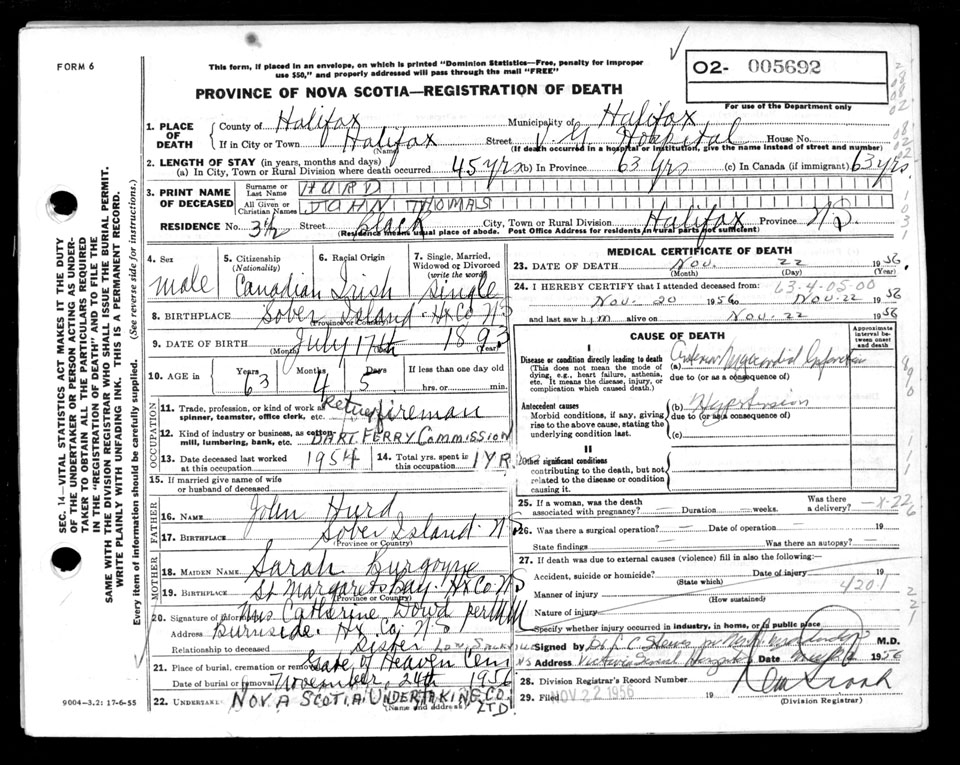 FORM 6
This form, if placed in an envelope, on which is printed "Dominion Statistics—Free, penalty for improper
use $50," and properly addressed will pass through the mail "FREE"
02- 005692
For use of the Department only
PROVINCE OF NOVA SCOTIA—REGISTRATION OF DEATH
1. PLACE OF DEATH
County of Halifax Municipality of Halifax
If in City or Town Halifax (Name) Street V. G. Hospital House No.
(If death occurred in a hospital or institution, give the name instead of street and number)
2. LENGTH OF STAY (in years, months and days)
(a) In City, Town or Rural Division where death occurred 45 yrs (b) In Province 63 yrs (c) In Canada (if immigrant) 63 yrs.
3. PRINT NAME OF DECEASED
Surname or Last Name HURD
All Given or Christian Names JOHN THOMAS
RESIDENCE No. 3½ Street Black City, Town or Rural Division Halifax Province NS.
(Residence means usual place of abode. Post Office Address for residents in rural parts not sufficient)
4. Sex
male
5. Citizenship (Nationality)
Canadian
6. Racial Origin
Irish
7. Single, Married, Widowed or Divorced (write the word)
Single
8. BIRTHPLACE Sober Island. Hx Co NS
(Province or Country)
9. DATE OF BIRTH July 17th 1893
(Month) (Day) (Year)
10. AGE in Years 63 Months 4 Days 5 If less than one day old
hrs. or min.
OCCUPATION
11. Trade, profession, or kind of work as spinner, teamster, office clerk, etc. Retired fireman
12. Kind of industry or business, as cotton-mill, lumbering, bank, etc. DART. FERRY COMMISSION
13. Date deceased last worked at this occupation 1954
14. Total yrs. spent in this occupation 1 YR.
15. If married give name of wife or husband of deceased
FATHER
16. NAME John Hurd
17. BIRTHPLACE Sober Island. NS
(Province or Country)
MOTHER
18. MAIDEN NAME Sarah Burgoyne
19. BIRTHPLACE St Margarets Bay. Hx Co. NS
(Province or Country)
20. Signature of informant Mrs Catherine Dowd per
Address Burnside. Hx Co. NS
Relationship to deceased Sister
21. Place of burial, cremation or removal Gate of Heaven Cem
Date of burial or removal November 24th 1956
22. UNDERTAKER NOVA SCOTIA UNDERTAKING CO. LTD.
(Name and address)
MEDICAL CERTIFICATE OF DEATH
23. DATE OF DEATH Nov. 22 1956
(Month) (Day) (Year)
24. I HEREBY CERTIFY that I attended deceased from:
63-4-05-00
Nov. 20 1956 to Nov. 22 1956
and last saw him alive on Nov. 22 1956
CAUSE OF DEATH
Approximate interval between onset and death
I
Disease or condition directly leading to death
(This does not mean the mode of dying, e.g., heart failure, asthenia, etc. It means the disease, injury, or complication which caused death.)
(a) Myocardial Infarction
due to (or as a consequence of)
Antecedent causes
Morbid conditions, if any, giving rise to the above cause, stating the underlying condition last.
(b) Hypertension
due to (or as a consequence of)
(c)
II
Other significant conditions
contributing to the death, but not related to the disease or condition causing it.
25. If a woman, was the death associated with pregnancy? — Duration weeks. Was there a delivery? —
26. Was there a surgical operation? — Date of operation 19
State findings Was there an autopsy? —
27. If death was due to external causes (violence) fill in also the following:—
Accident, suicide or homicide? Date of injury 19
(State which)
Manner of injury 4201
(How sustained)
Nature of injury
Specify whether injury occurred in industry, in home, or in public place
Signed by M.D.
Address Victoria General Hospital Date 1956
28. Division Registrar's Record Number
29. Filed NOV 22 1956 19
(Division Registrar)
9004—3.2: 17-6-55
SEC. 14—VITAL STATISTICS ACT MAKES IT THE DUTY
OF THE UNDERTAKER OR PERSON ACTING AS UNDER-
TAKER TO OBTAIN ALL THE PARTICULARS REQUIRED
IN THE "REGISTRATION OF DEATH" AND TO FILE THE
SAME WITH THE DIVISION REGISTRAR WHO SHALL ISSUE THE BURIAL PERMIT.
WRITE PLAINLY WITH UNFADING INK. THIS IS A PERMANENT RECORD.
Every item of Information should be carefully supplied. (See reverse side for instructions.)